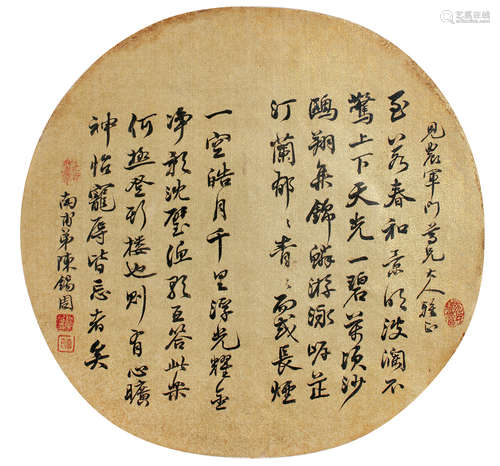 見農軍門尊兄大人雅正
至若春和景明波瀾不
驚上下天光一碧萬頃沙
鷗翔集錦鱗游泳岸芷
汀蘭郁〻青〻而或長煙
一空皓月千里浮光耀金
淨影沈璧漁歌互答此樂
何極登斯楼也則有心曠
神怡寵辱皆忘者矣
南甫弟陳錫周